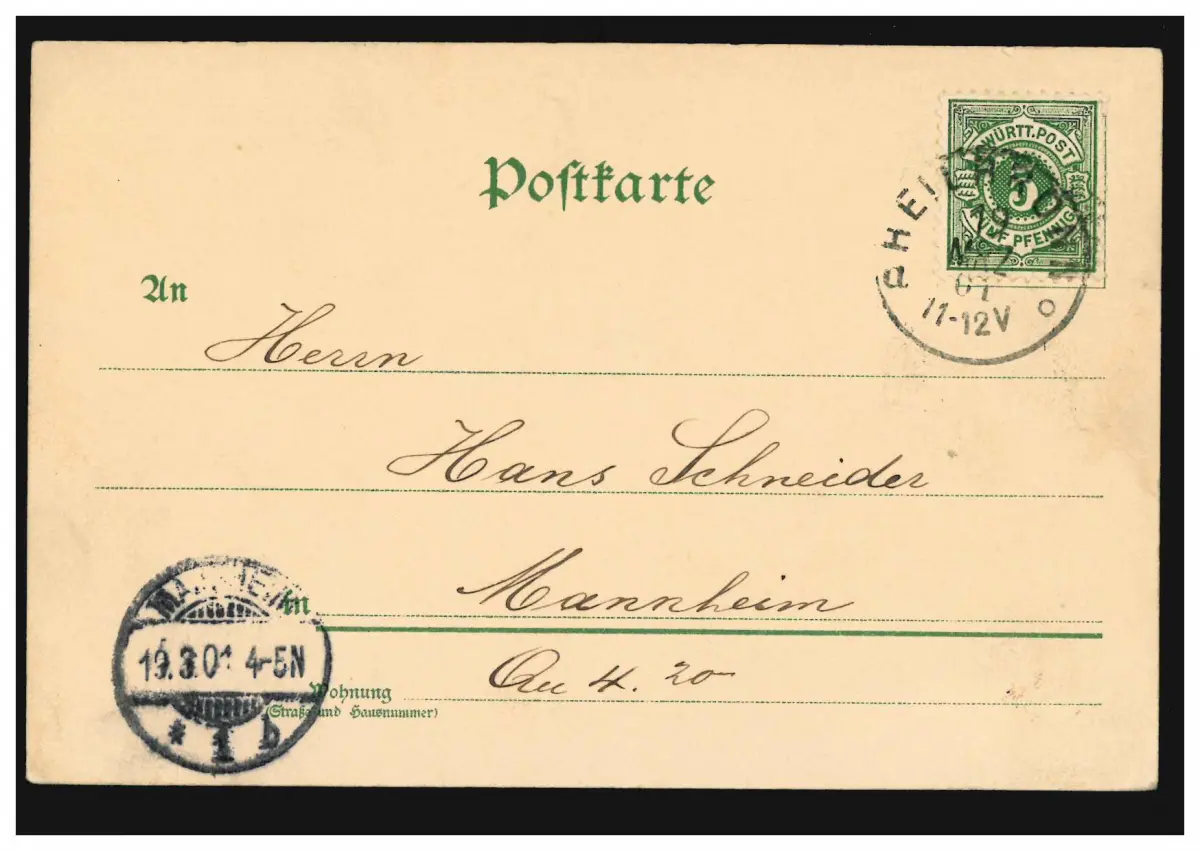 Postkarte
WÜRTT. POST
5
FÜNF PFENNIG
HEILBRONN
19
MRZ
01
11-12V
An
Herrn
Hans Schneider
In Mannheim
MANNHEIM
19.3.01 4-5N
* 1 b
Wohnung 4. 20
(Straße und Hausnummer)